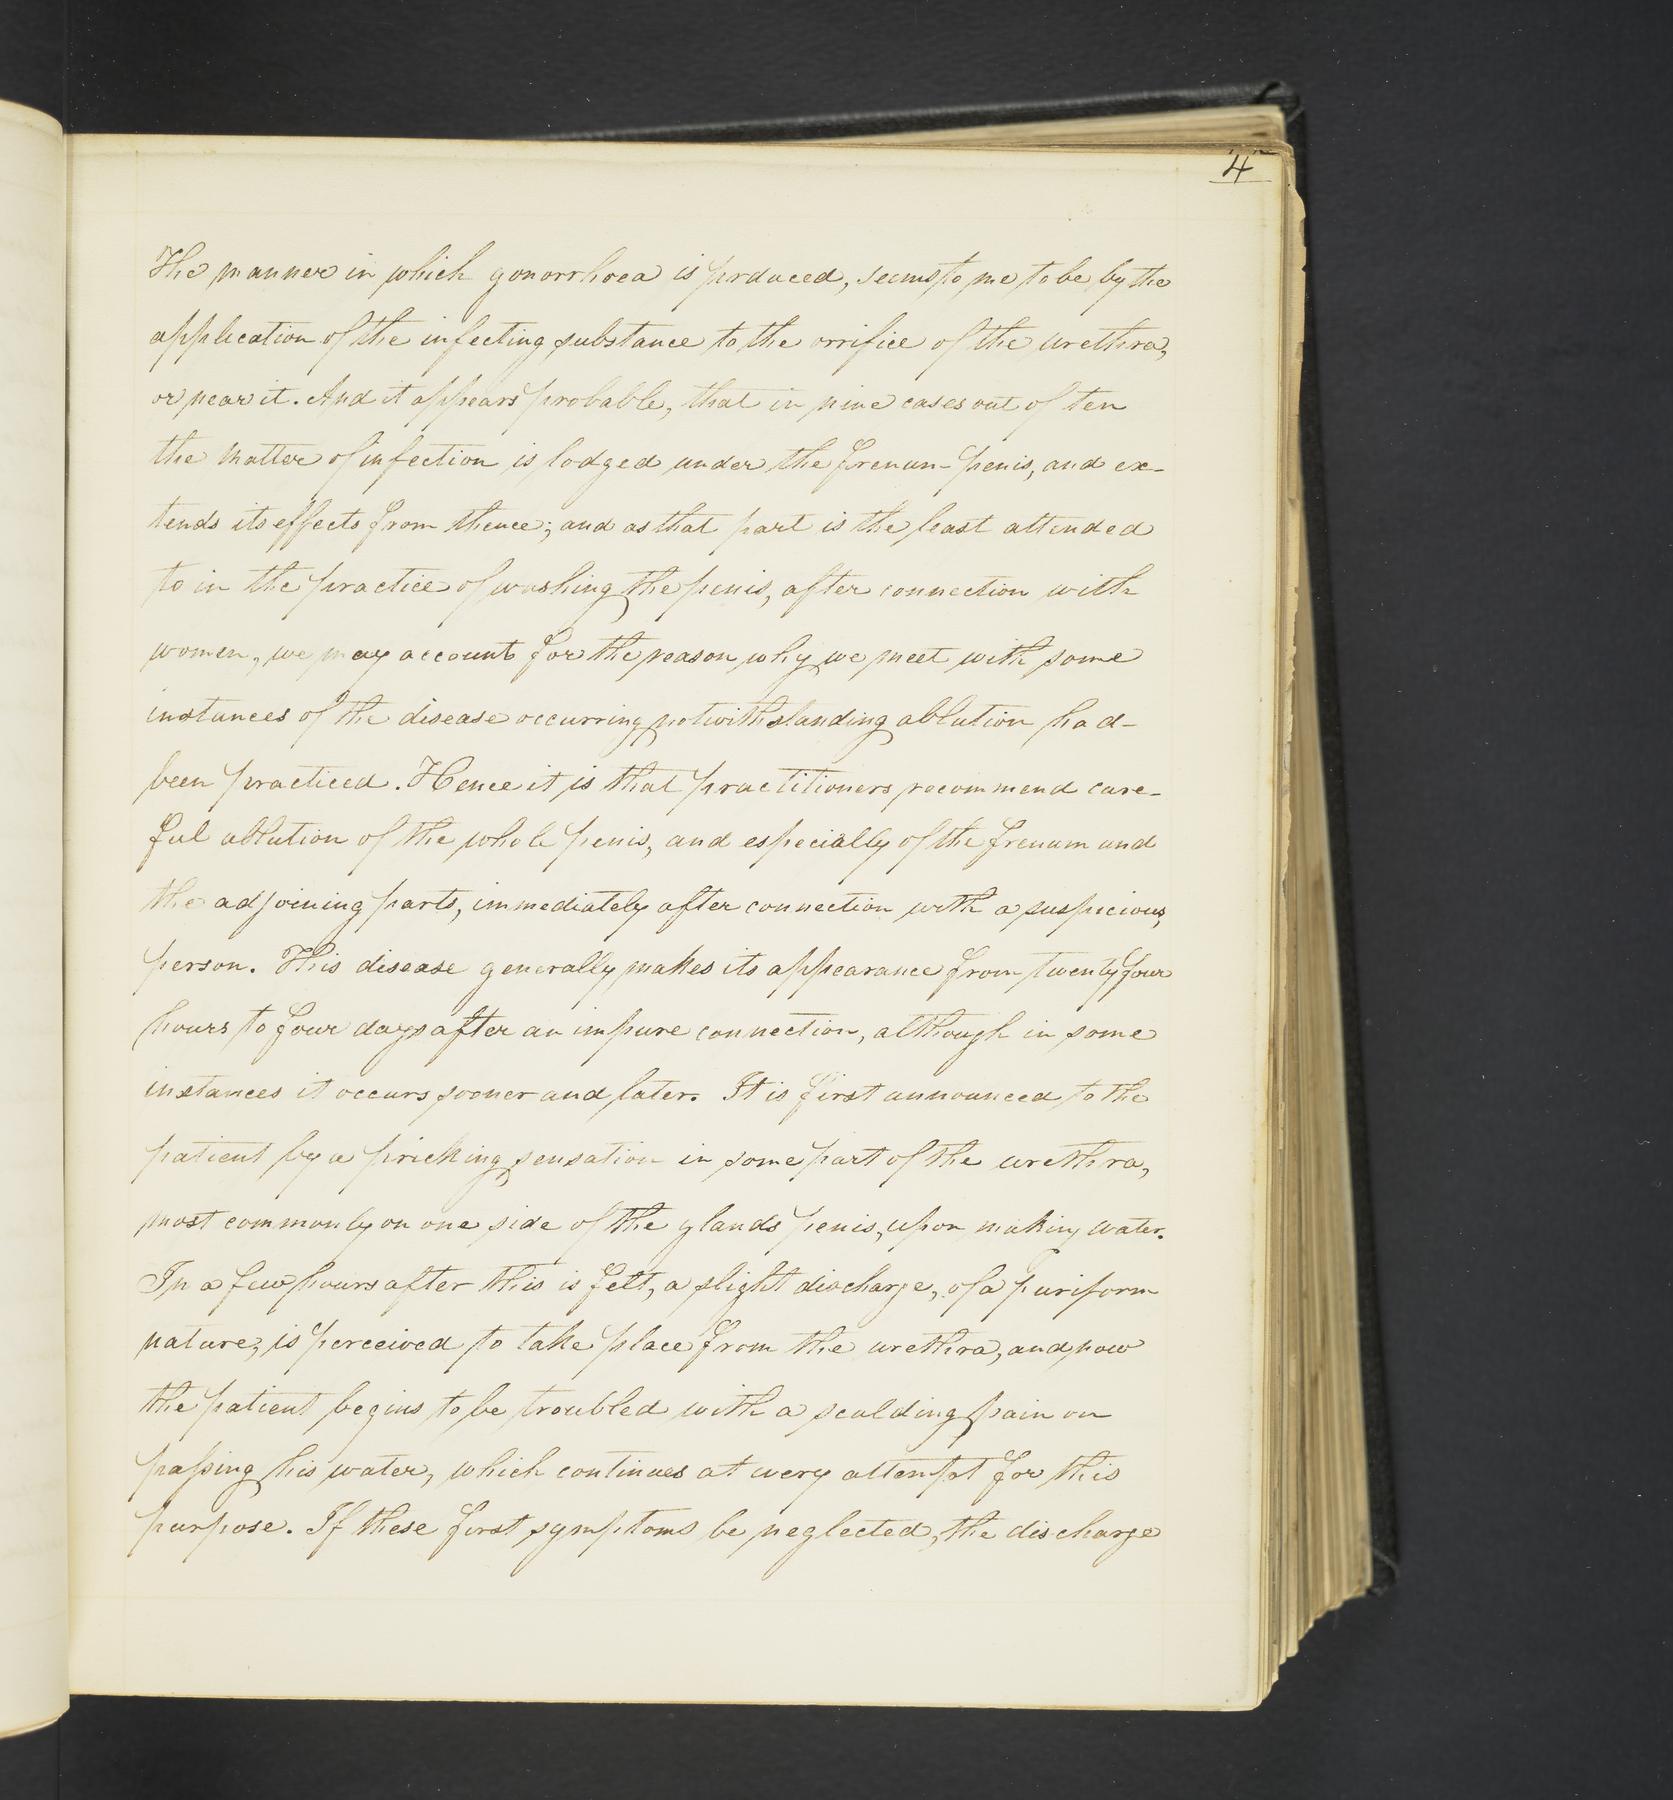 4
The manner in which gonorrhoea is prduced, seems to me to be by the
application of the infecting substance to the orrifice of the urethra,
or near it. And it appears probable, that in nine cases out of ten
the matter of infection is lodged under the frenum-penis, and ex-
tends its effects from thence; and as that part is the least attended
to in the practice of washing the penis, after connection with
women, we may account for the reason why we meet with some
instances of the disease occurring notwithstanding ablution had-
been practiced. Hence it is that practitioners recommend care-
ful ablution of the whole penis, and especially of the frenum and
the adjoining parts, immediately after connection with a suspicious
person. This disease generally makes its appearance from twenty four
hours to four days after an impure connection, although in some
instances it occurs sooner and later. It is first announced to the
patient by a pricking sensation in some part of the urethra,
most commonly on one side of the glands penis, upon making water.
In a few hours after this is felt, a slight discharge, of a puriform
nature, is perceived to take place from the urethra, and now
the patient begins to be troubled with a scalding pain on
passing his water, which continues at every attempt for this
purpose. If these first symptoms be neglected, the discharge